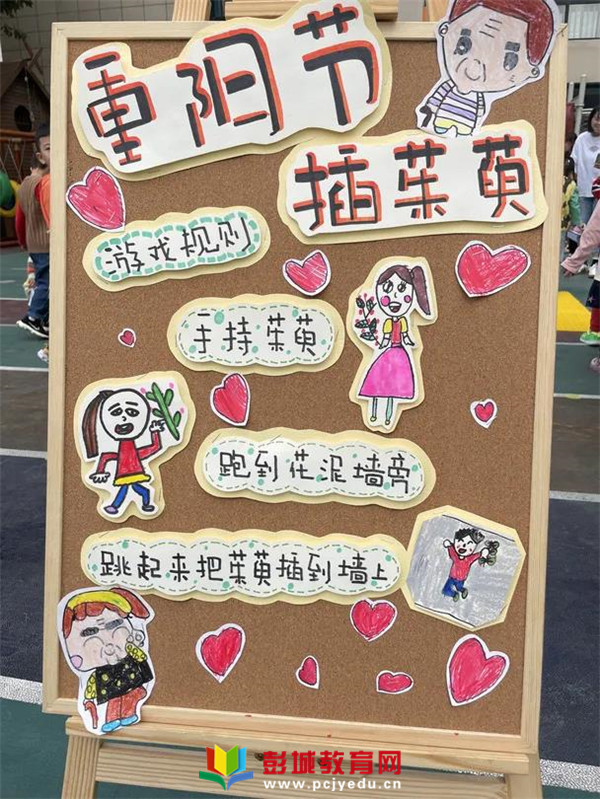 重阳节
插茱萸
游戏规则
手持茱萸
跑到花泥墙旁
跳起来把茱萸插到墙上
彭城教育网
www.pcjyedu.cn